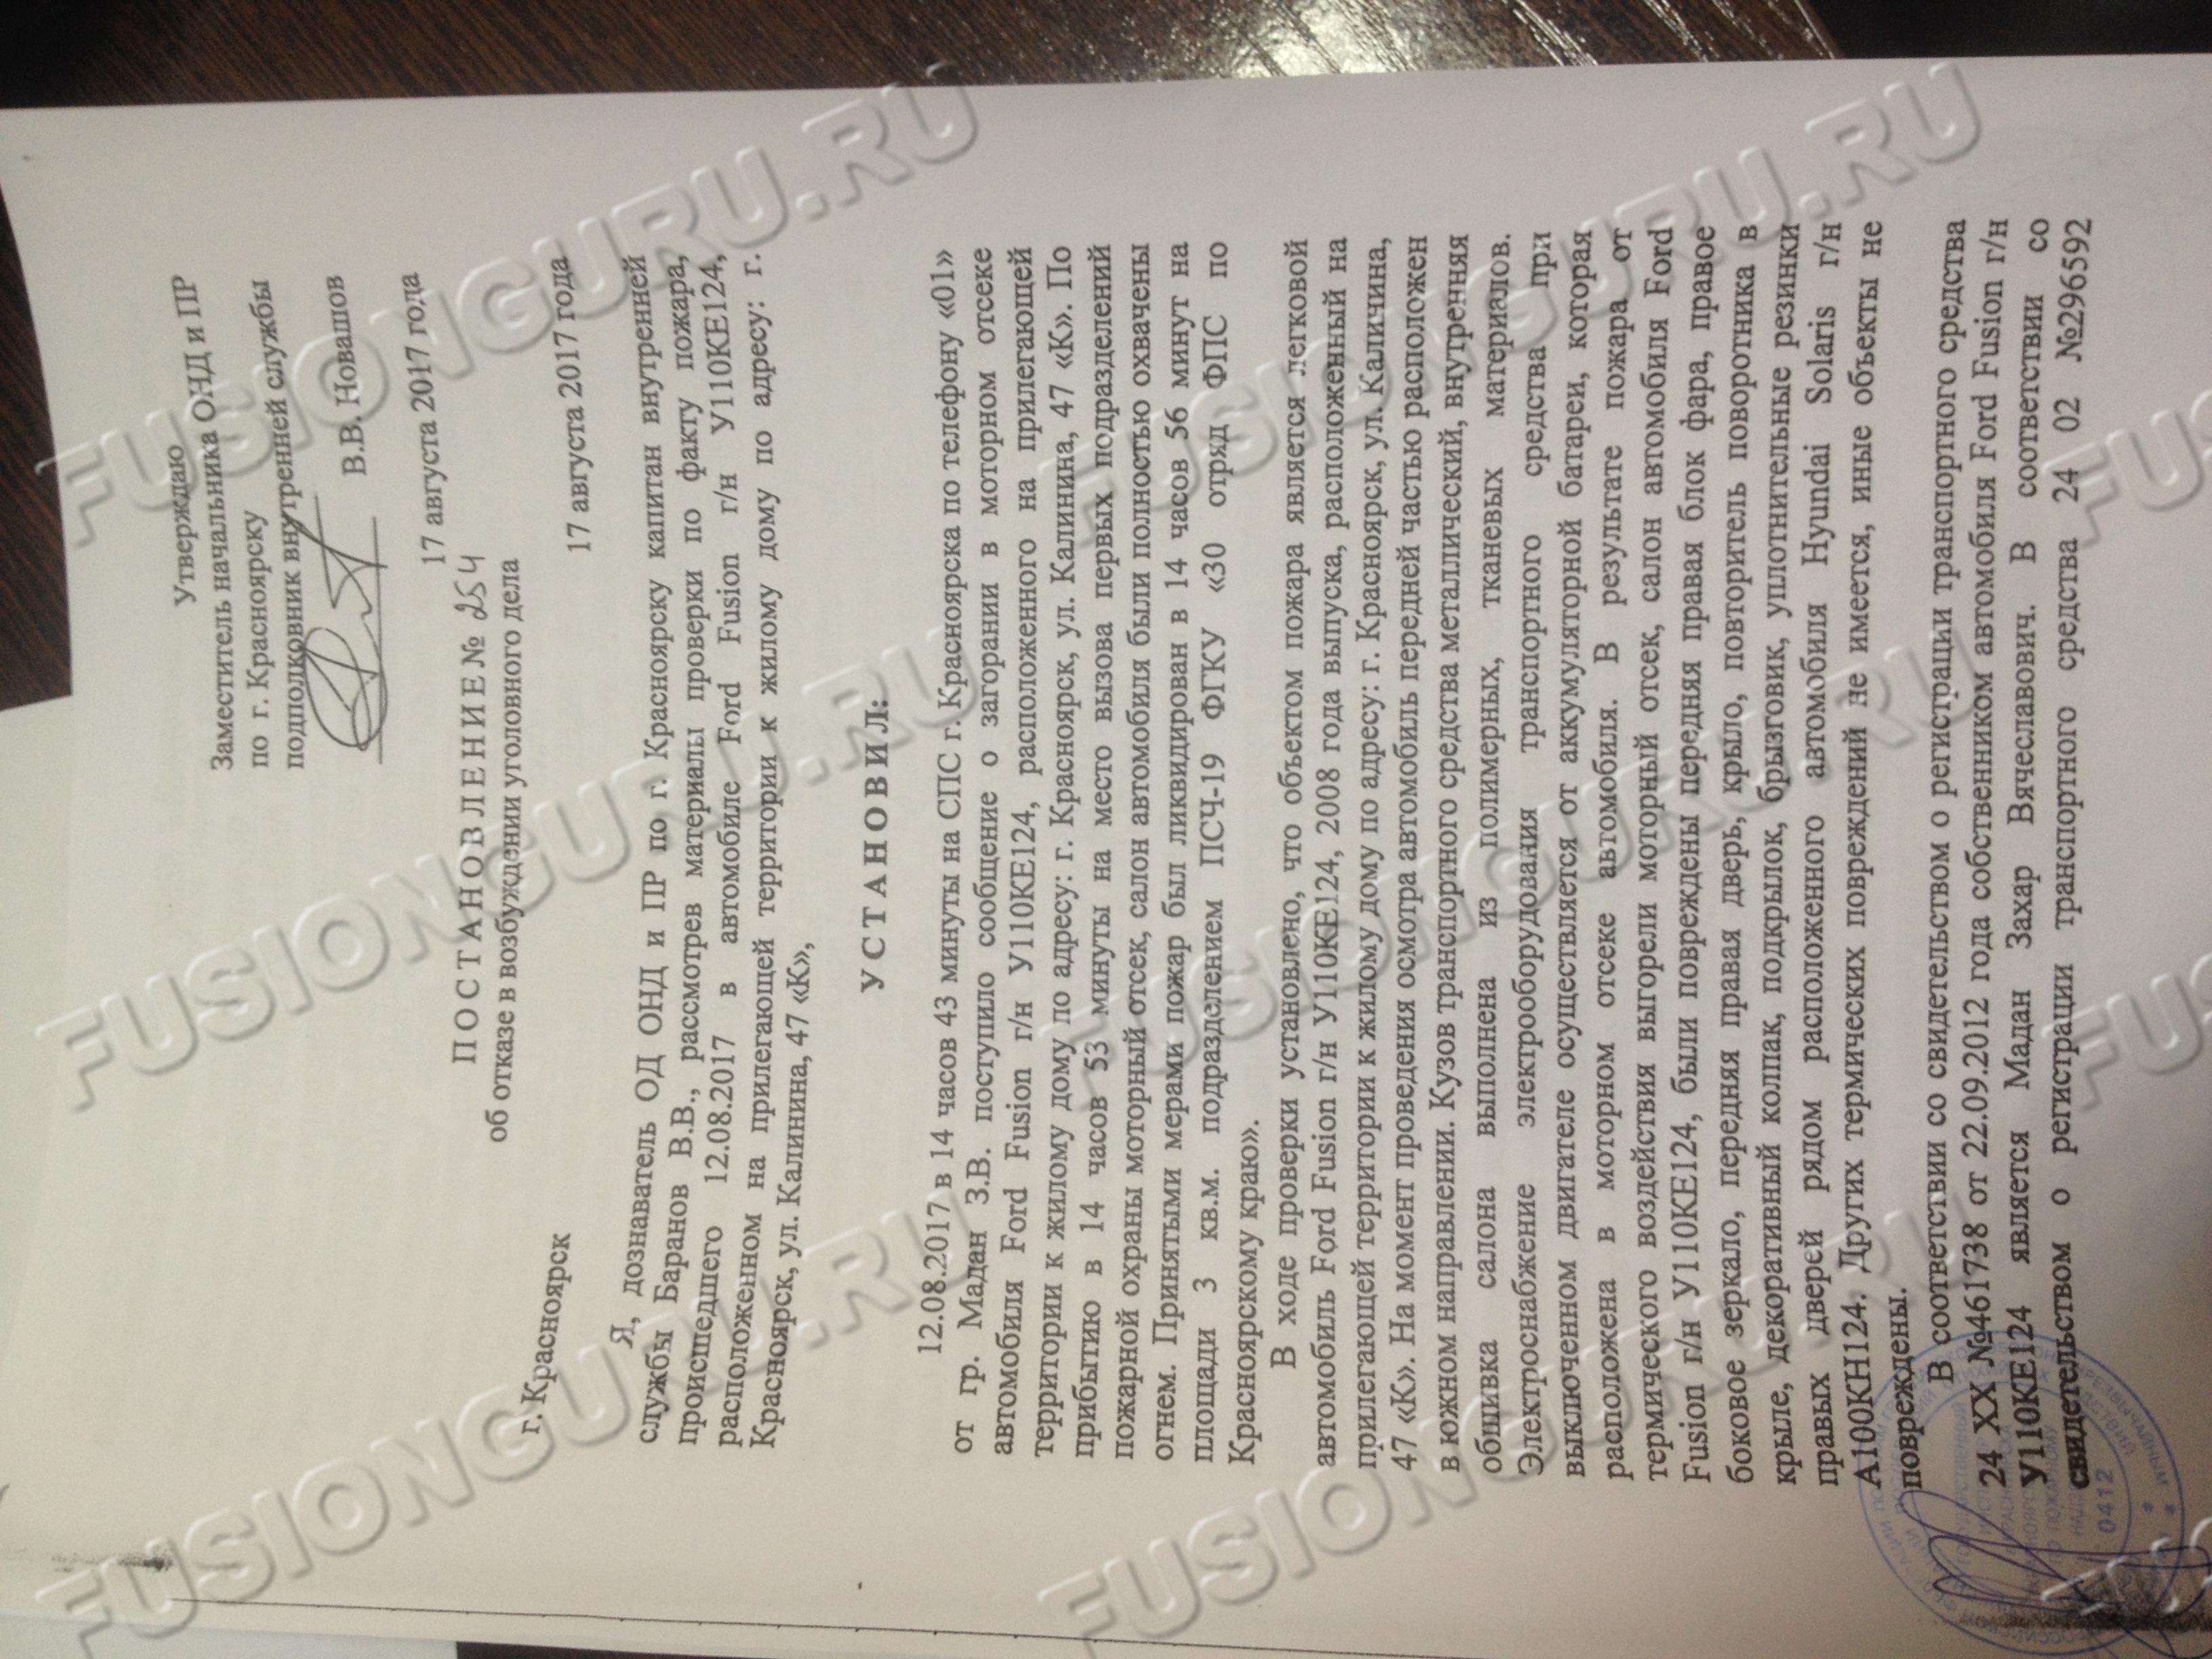 Утверждаю
Заместитель начальника ОНД и ПР
по г. Красноярску
подполковник внутренней службы
В.В. Новашов
17 августа 2017 года
ПОСТАНОВЛЕНИЕ № 254
об отказе в возбуждении уголовного дела
г. Красноярск 17 августа 2017 года
Я, дознаватель ОД ОНД и ПР по г. Красноярску капитан внутренней
службы Баранов В.В., рассмотрев материалы проверки по факту пожара,
происшедшего 12.08.2017 в автомобиле Ford Fusion г/н У110КЕ124,
расположенном на прилегающей территории к жилому дому по адресу: г.
Красноярск, ул. Калинина, 47 «К»,
УСТАНОВИЛ:
12.08.2017 в 14 часов 43 минуты на СПС г. Красноярска по телефону «01»
от гр. Мадан З.В. поступило сообщение о загорании в моторном отсеке
автомобиля Ford Fusion г/н У110КЕ124, расположенного на прилегающей
территории к жилому дому по адресу: г. Красноярск, ул. Калинина, 47 «К». По
прибытию в 14 часов 53 минуты на место вызова первых подразделений
пожарной охраны моторный отсек, салон автомобиля были полностью охвачены
огнем. Принятыми мерами пожар был ликвидирован в 14 часов 56 минут на
площади 3 кв.м. подразделением ПСЧ-19 ФГКУ «30 отряд ФПС по
Красноярскому краю».
В ходе проверки установлено, что объектом пожара является легковой
автомобиль Ford Fusion г/н У110КЕ124, 2008 года выпуска, расположенный на
прилегающей территории к жилому дому по адресу: г. Красноярск, ул. Калинина,
47 «К». На момент проведения осмотра автомобиль передней частью расположен
в южном направлении. Кузов транспортного средства металлический, внутренняя
обшивка салона выполнена из полимерных, тканевых материалов.
Электроснабжение электрооборудования транспортного средства при
выключенном двигателе осуществляется от аккумуляторной батареи, которая
расположена в моторном отсеке автомобиля. В результате пожара от
термического воздействия выгорели моторный отсек, салон автомобиля Ford
Fusion г/н У110КЕ124, были повреждены передняя правая блок фара, правое
боковое зеркало, передняя правая дверь, крыло, повторитель поворотника в
крыле, декоративный колпак, подкрылок, брызговик, уплотнительные резинки
правых дверей рядом расположенного автомобиля Hyundai Solaris г/н
А100КН124. Других термических повреждений не имеется, иные объекты не
повреждены.
В соответствии со свидетельством о регистрации транспортного средства
24 ХХ №461738 от 22.09.2012 года собственником автомобиля Ford Fusion г/н
У110КЕ124 является Мадан Захар Вячеславович. В соответствии со
свидетельством о регистрации транспортного средства 24 02 №296592
0412
FUSIONGURU.RU
FUSIONGURU.RU
FUSIONGURU.RU
FUSIONGURU.RU
FUSIONGURU.RU
FUSIONGURU.RU